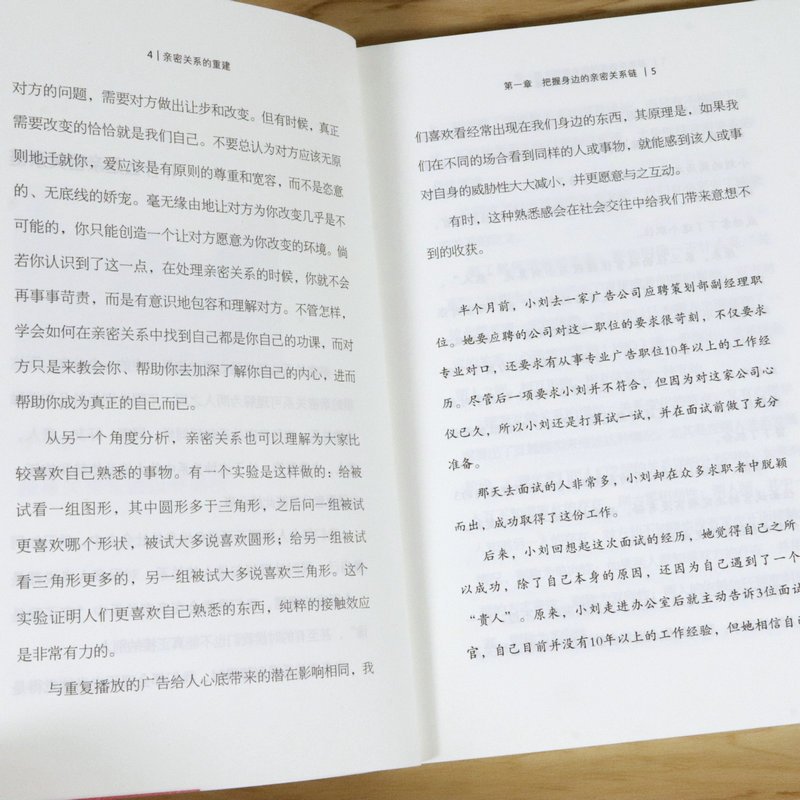 4 | 亲密关系的重建
对方的问题，需要对方做出让步和改变。但有时候，真正
需要改变的恰恰就是我们自己。不要总认为对方应该无原
则地迁就你，爱应该是有原则的尊重和宽容，而不是恣意
的、无底线的娇宠。毫无缘由地让对方为你改变几乎是不
可能的，你只能创造一个让对方愿意为你改变的环境。倘
若你认识到了这一点，在处理亲密关系的时候，你就不会
再事事苛责，而是有意识地包容和理解对方。不管怎样，
学会如何在亲密关系中找到自己都是你自己的功课，而对
方只是来教会你、帮助你去加深了解你自己的内心，进而
帮助你成为真正的自己而已。
从另一个角度分析，亲密关系也可以理解为大家比
较喜欢自己熟悉的事物。有一个实验是这样做的：给被
试看一组图形，其中圆形多于三角形，之后问一组被试
更喜欢哪个形状，被试大多说喜欢圆形；给另一组被试
看三角形更多的，另一组被试大多说喜欢三角形。这个
实验证明人们更喜欢自己熟悉的东西，纯粹的接触效应
是非常有力的。
与重复播放的广告给人心底带来的潜在影响相同，我
第一章 把握身边的亲密关系链 | 5
们喜欢看经常出现在我们身边的东西，其原理是，如果我
们在不同的场合看到同样的人或事物，就能感到该人或事
对自身的威胁性大大减小，并更愿意与之互动。
有时，这种熟悉感会在社会交往中给我们带来意想不
到的收获。
半个月前，小刘去一家广告公司应聘策划部副经理职
位。她要应聘的公司对这一职位的要求很苛刻，不仅要求
专业对口，还要求有从事专业广告职位10年以上的工作经
历。尽管后一项要求小刘并不符合，但因为对这家公司心
仪已久，所以小刘还是打算试一试，并在面试前做了充分
准备。
那天去面试的人非常多，小刘却在众多求职者中脱颖
而出，成功取得了这份工作。
后来，小刘回想起这次面试的经历，她觉得自己之所
以成功，除了自己本身的原因，还因为自己遇到了一个
“贵人”。原来，小刘走进办公室后就主动告诉3位面试
官，自己目前并没有10年以上的工作经验，但她相信自己